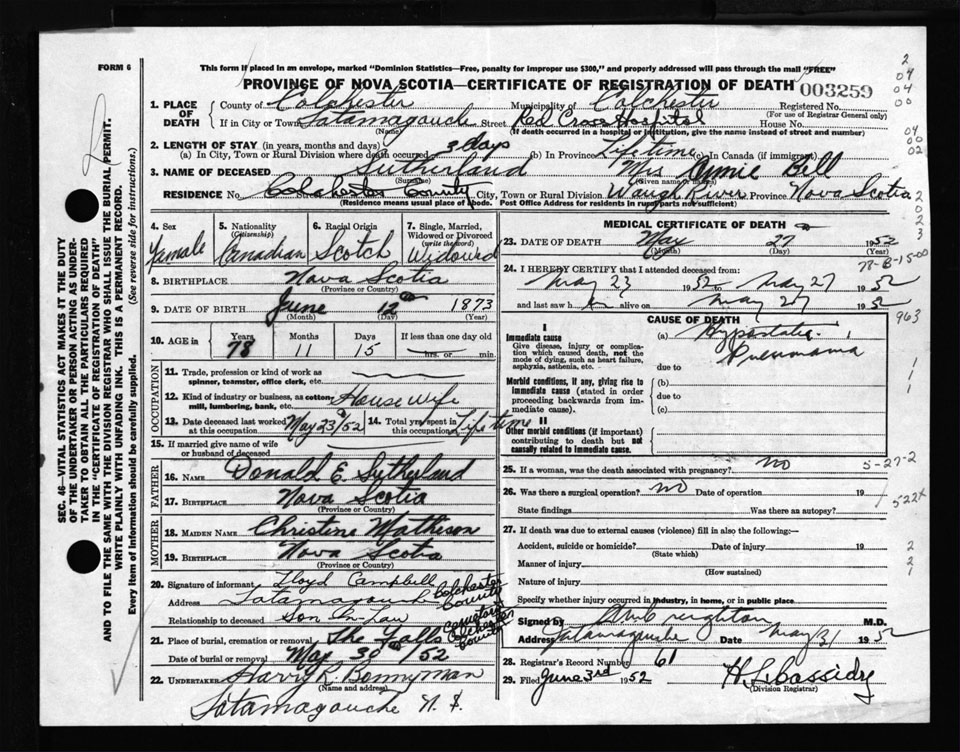 FORM 6
This form if placed in an envelope, marked "Dominion Statistics—Free, penalty for improper use $300," and properly addressed will pass through the mail "FREE"
PROVINCE OF NOVA SCOTIA—CERTIFICATE OF REGISTRATION OF DEATH 003259
1. PLACE OF DEATH
County of Colchester Municipality of Colchester Registered No.
(For use of Registrar General only)
If in City or Town Tatamagouche Street Red Cross Hospital House No.
(Name) (If death occurred in a hospital or institution, give the name instead of street and number)
2. LENGTH OF STAY (in years, months and days)
(a) In City, Town or Rural Division where death occurred 3 days (b) In Province Lifetime (c) In Canada (if immigrant)
3. NAME OF DECEASED Sutherland Mrs Annie Bell
(Surname) (Given name or names)
RESIDENCE No. Street Colchester County City, Town or Rural Division Waugh River Province Nova Scotia
(Residence means usual place of abode. Post Office Address for residents in rural parts not sufficient)
4. Sex Female
5. Nationality (Citizenship) Canadian
6. Racial Origin Scotch
7. Single, Married, Widowed or Divorced (write the word) Widowed
8. BIRTHPLACE Nova Scotia
(Province or Country)
9. DATE OF BIRTH June 12th 1873
(Month) (Day) (Year)
10. AGE in Years Months Days If less than one day old
78 11 15 hrs. or min.
OCCUPATION
11. Trade, profession or kind of work as spinner, teamster, office clerk, etc.
12. Kind of industry or business, as cotton mill, lumbering, bank, etc. House wife
13. Date deceased last worked at this occupation May 23/52 14. Total yrs. spent in this occupation Life time
15. If married give name of wife or husband of deceased
FATHER
16. NAME Donald E. Sutherland
17. BIRTHPLACE Nova Scotia
(Province or Country)
MOTHER
18. MAIDEN NAME Christine Matheson
19. BIRTHPLACE Nova Scotia
(Province or Country)
20. Signature of informant Lloyd Campbell
Address Tatamagouche Colchester County
Relationship to deceased Son In Law
21. Place of burial, cremation or removal The Falls cemetery Colchester County
Date of burial or removal May 30th /52
22. UNDERTAKER Harry R. Bonnyman
(Name and address)
Tatamagouche N. S.
MEDICAL CERTIFICATE OF DEATH
23. DATE OF DEATH May 27 1952
(Month) (Day) (Year)
78-B-15-00
24. I HEREBY CERTIFY that I attended deceased from:
May 23 1952 to May 27 1952
and last saw h alive on May 27 1952
963
CAUSE OF DEATH
I
Immediate cause
Give disease, injury or complication which caused death, not the mode of dying, such as heart failure, asphyxia, asthenia, etc.
(a) Hypostatic Pneumonia
due to
Morbid conditions, if any, giving rise to immediate cause (stated in order proceeding backwards from immediate cause).
(b)
due to
(c)
II
Other morbid conditions (if important) contributing to death but not causally related to immediate cause.
25. If a woman, was the death associated with pregnancy? no 5-27-2
26. Was there a surgical operation? no Date of operation 19
522X
State findings Was there an autopsy?
27. If death was due to external causes (violence) fill in also the following:—
Accident, suicide or homicide? Date of injury 19
(State which)
Manner of injury
(How sustained)
Nature of injury
Specify whether injury occurred in industry, in home, or in public place
Signed by Creighton M.D.
Address Tatamagouche Date May 31 1952
28. Registrar's Record Number 61
29. Filed June 3rd 1952 H. L. Cassidy
(Division Registrar)
SEC. 46—VITAL STATISTICS ACT MAKES IT THE DUTY
OF THE UNDERTAKER OR PERSON ACTING AS UNDER-
TAKER TO OBTAIN ALL THE PARTICULARS REQUIRED
IN THE "CERTIFICATE OF REGISTRATION OF DEATH"
AND TO FILE THE SAME WITH THE DIVISION REGISTRAR WHO SHALL ISSUE THE BURIAL PERMIT.
WRITE PLAINLY WITH UNFADING INK. THIS IS A PERMANENT RECORD.
Every item of information should be carefully supplied. (See reverse side for instructions.)
2
04
04
00
04
00
02
2
0
2
2
3
1
1
1
2
2
1